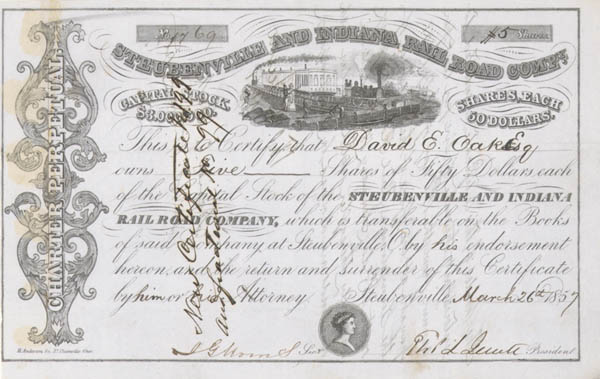 No. 1769
$5 Shares
STEUBENVILLE AND INDIANA RAIL ROAD COMPY.
CAPITAL STOCK
$3,000,000.
SHARES, EACH
50 DOLLARS.
CHARTER PERPETUAL.
This is to Certify that David E. Oakes Esq
owns five Shares of Fifty Dollars each
of the Capital Stock of the STEUBENVILLE AND INDIANA
RAIL ROAD COMPANY, which is transferable on the Books
of said Company at Steubenville, O. by his endorsement
hereon, and the return and surrender of this Certificate
by him or his Attorney. Steubenville, March 26th 1857
Secy
President
New Certificate